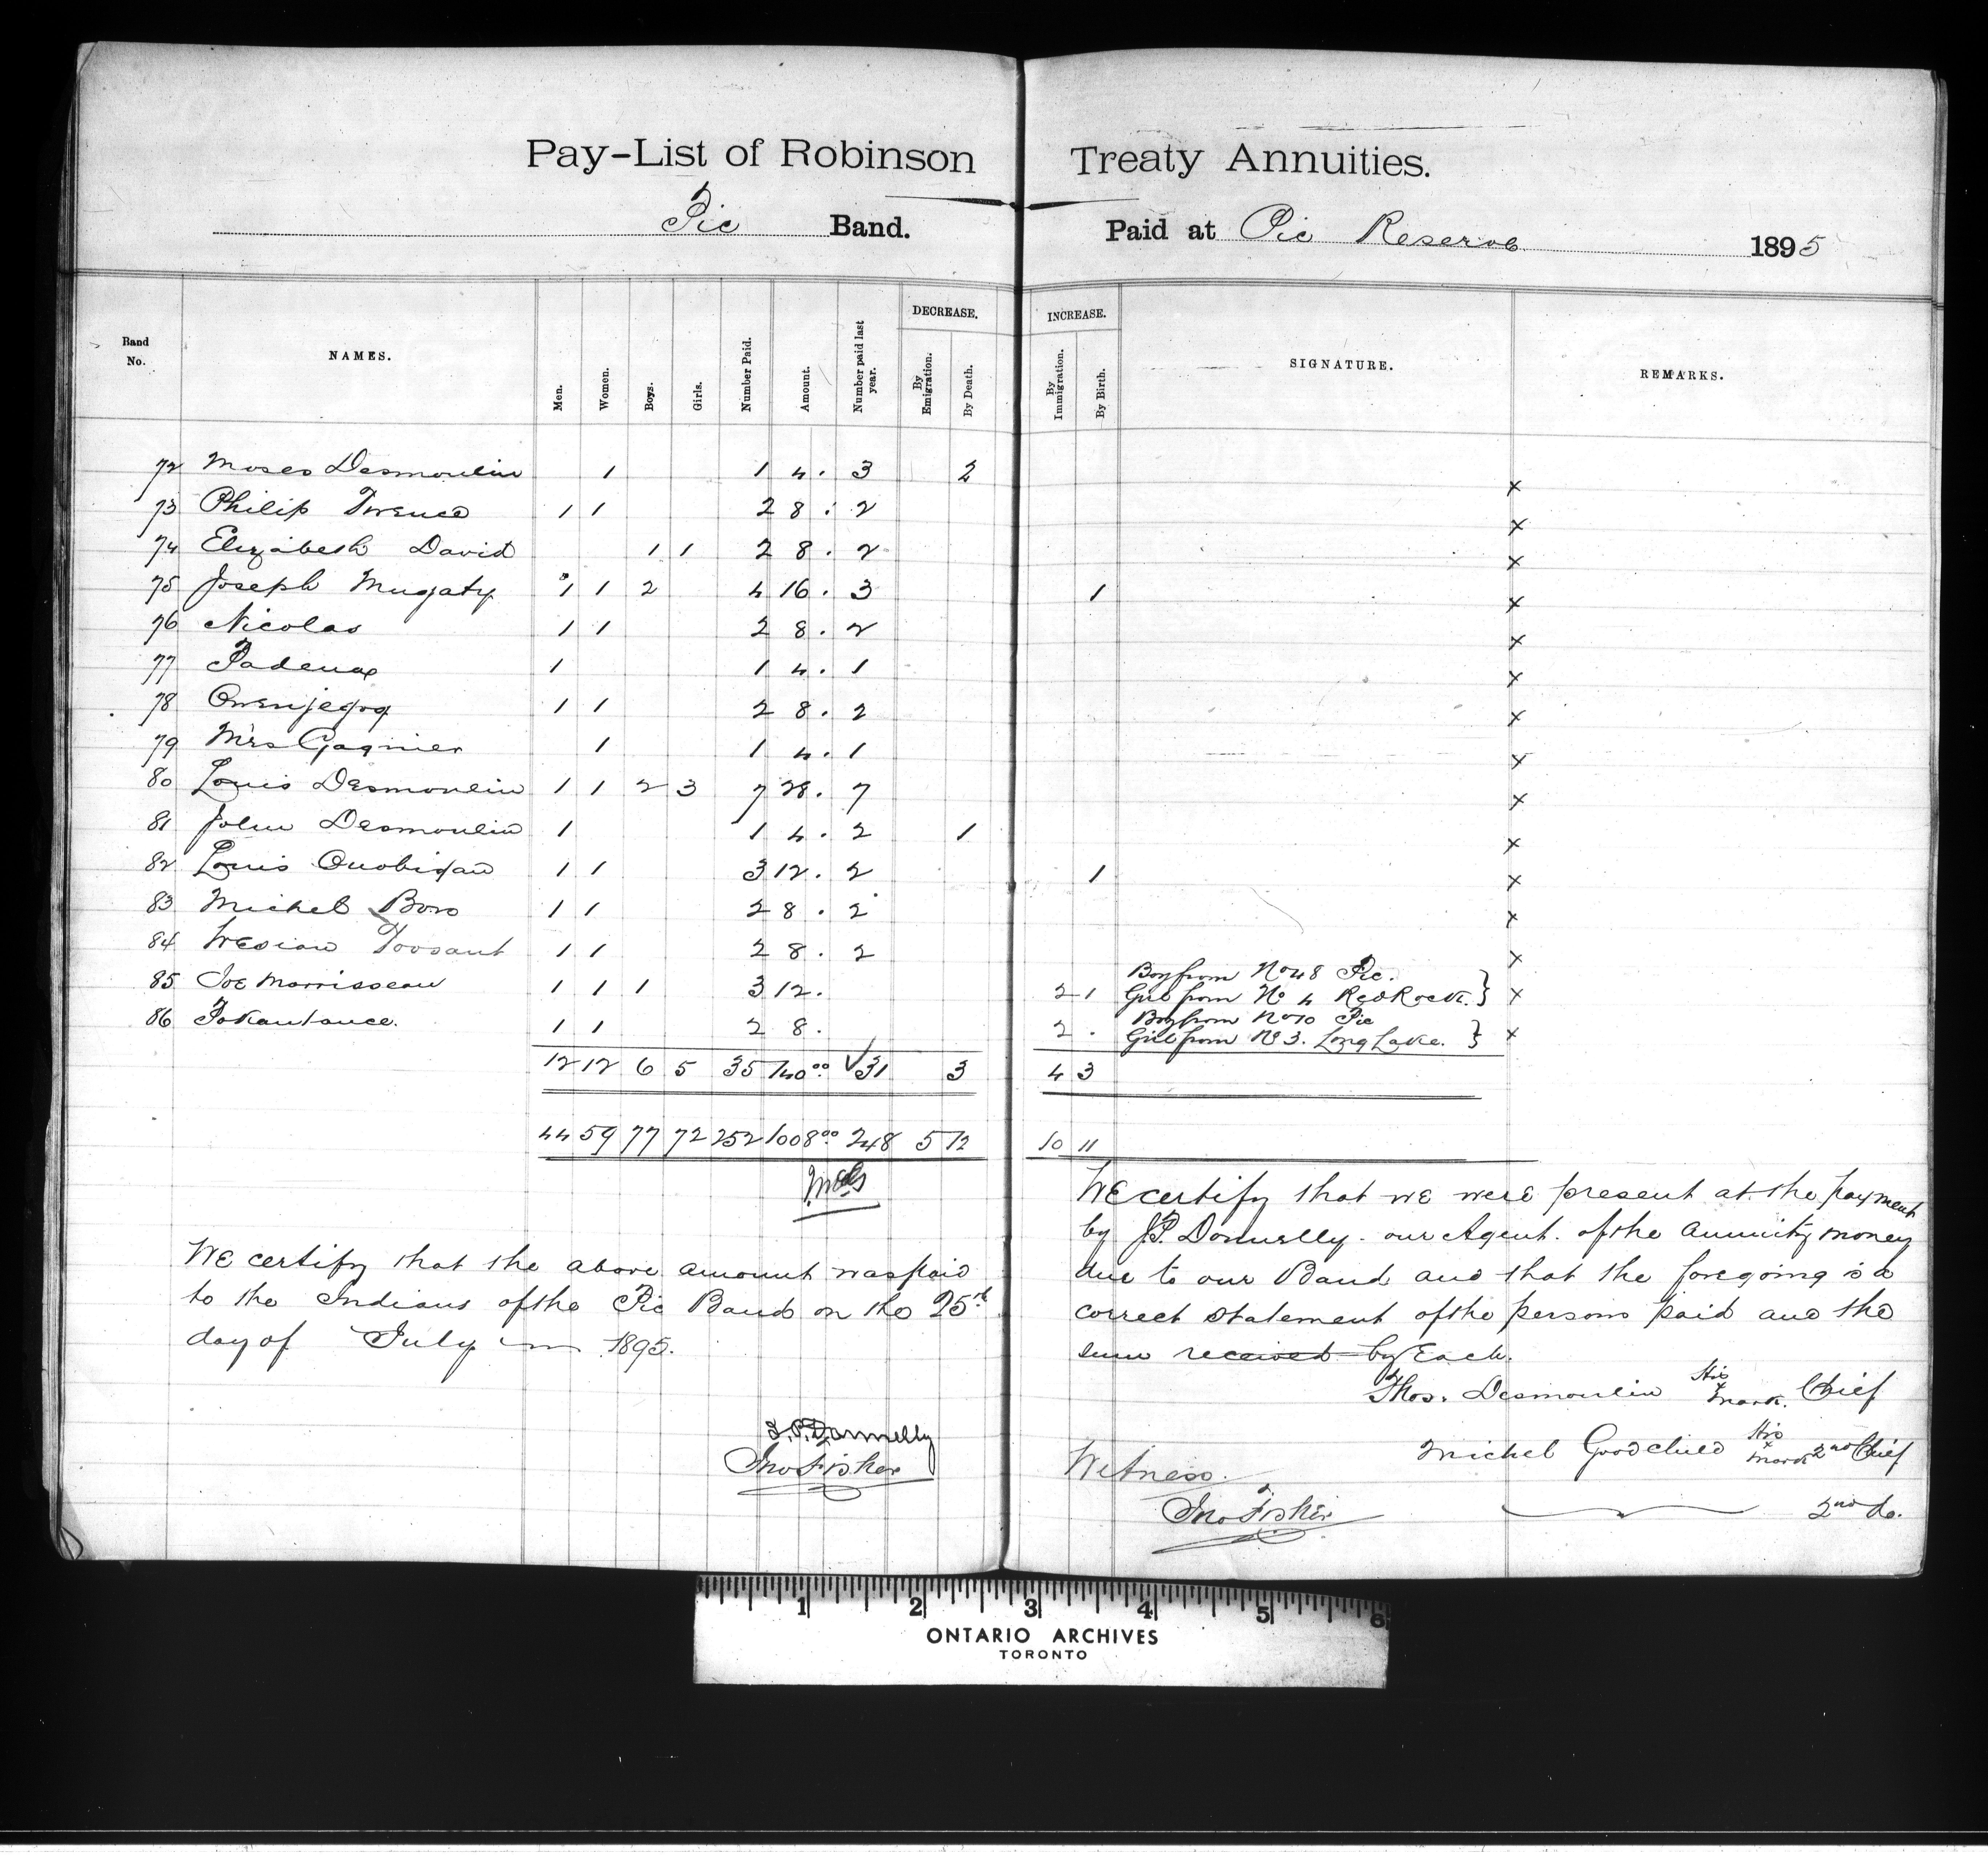 Pay-List of Robinson Treaty Annuities.
Pic Band. Paid at Pic Reserve 1895
Band No. NAMES. Men. Women. Boys. Girls. Number Paid. Amount. Number paid last year. DECREASE. By Emigration. By Death. INCREASE. By Immigration. By Birth. SIGNATURE. REMARKS.
72 Moses Desmoulin 1 1 4. 3 2 x
73 Philip 1 1 2 8. 2 x
74 Elizabeth David 1 1 2 8. 2 x
75 Joseph Mugaty 1 1 2 4 16. 3 1 x
76 Nicolas 1 1 2 8. 2 x
77 1 1 4. 1 x
78 1 1 2 8. 2 x
79 Mrs Gagnier 1 1 4. 1 x
80 Louis Desmoulin 1 1 2 3 7 28. 7 x
81 John Desmoulin 1 1 4. 2 1 x
82 Louis 1 1 3 12. 2 1 x
83 Michel 1 1 2 8. 2 x
84 1 1 2 8. 2 x
85 Joe Morrisseau 1 1 1 3 12. 2 1 Boy from No 48 Pic. Girl from No 4 Red Rock. } x
86 1 1 2 8. 2 . Boy from No 70 Pic Girl from No 3. Long Lake. } x
12 12 6 5 35 140 00 √31 3 4 3
44 59 77 72 252 1008 00 248 5 12 10 11
We certify that the above amount was paid
to the Indians of the Pic Band on the 25th
day of July 1895.
J. P. Donnelly
Jno Fisher
We certify that we were present at the payment
by J.P. Donnelly. our Agent. of the annuity money
due to our Band and that the foregoing is a
correct statement of the persons paid and the
sum received by Each.
Thos. Desmoulin His x mark. Chief
Michel Goodchild His x mark 2nd Chief
Witness.
Jno Fisher 2nd do.
1 2 3 4 5 6
ONTARIO ARCHIVES
TORONTO